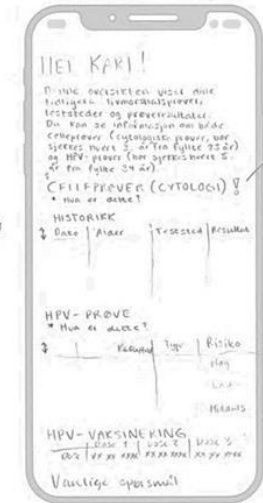 HEI KARI!
Denne oversikten viser dine
tidligere livmorhalsprøver,
teststeder og prøveresultater.
Du kan se informasjon om både
celleprøver (cytologiske prøver, bør
sjekkes hvert 3. år fra fylte 25 år)
og HPV-prøver (bør sjekkes hvert 5.
år fra fylte 34 år).
CELLEPRØVER (CYTOLOGI) !
* Hva er dette?
HISTORIKK
Dato Alder Teststed Resultat
HPV-PRØVE
* Hva er dette?
Resultat Type Risiko
Høy
Lav
Middels
HPV-VAKSINERING
Dose 1 Dose 2 Dose 3
xx xx xxxx xx xx xxxx xx xx xxxx
Vanlige spørsmål